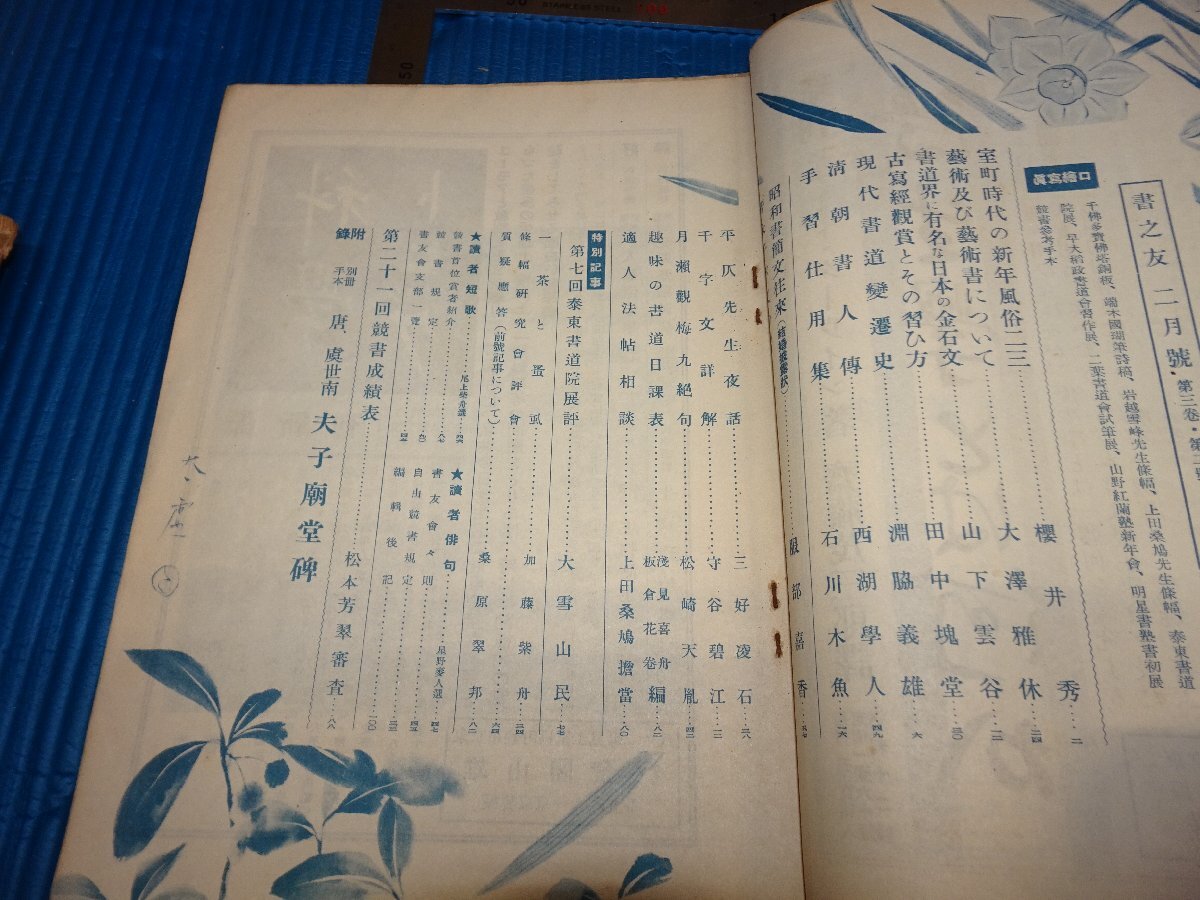 書之友 二月號・第三卷・第二號
口繪寫眞
千佛多寶佛塔銅板、端木國瑚筆詩稿、岩越雪峰先生條幅、上田桑鳩先生條幅、泰東書道
院展、早大稻政書道會習作展、二葉書道會試筆展、山野紅蘭塾新年會、明星書塾書初展
競書參考手本
室町時代の新年風俗二三……櫻井秀…二
藝術及び藝術書について……大澤雅休…二四
書道界に有名な日本の金石文……山下雲谷…一二
古寫經觀賞とその習ひ方……田中塊堂…三〇
現代書道變遷史……淵脇義雄…六
清朝書人傳……西湖學人…四九
手習仕用集……石川木魚…一六
昭和書簡文往來(結婚披露狀)……服部嘉香…五七
平仄先生夜話……三好凌石…三八
千字文詳解……守谷碧江…一二
月瀬觀梅九絶句……松崎天胤…四二
趣味の書道日課表……淺見喜舟 板倉花卷編…八二
適人法帖相談……上田桑鳩擔當…八〇
特別記事
第七回泰東書道院展評……大雪山民…七七
一茶と蚤虱……加藤紫舟…三四
條幅研究會評會……六四
質疑應答(前號記事について)……桑原翠邦…八二
★讀者短歌……尾上柴舟選…四六
競書首位賞者紹介……八七
競書規定
書友會支部一覽……九七
★讀者俳句……星野麥人選…四七
書友會々則
自由競書規定
編輯後記
第二十一回競書成績表……一〇〇
附錄 別冊手本 唐、虞世南 夫子廟堂碑……松本芳翠審査…八八